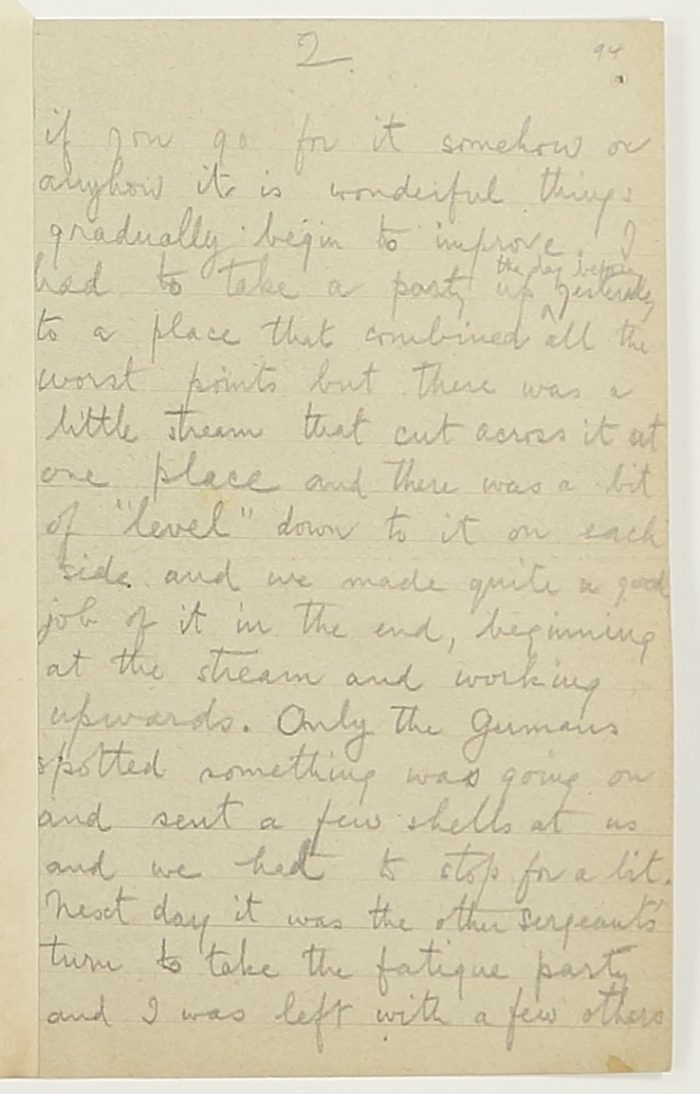 2
94
if you go for it somehow or
anyhow it is wonderful things
gradually begin to improve. I
the day before
had to take a party up ^ yesterday
to a place that combined all the
worst points but there was a
little stream that cut across it at
one place and there was a bit
of "level" down to it on each
side. and we made quite a good
job of it in the end, beginning
at the stream and working
upwards. Only the Germans
spotted something was going on
and sent a few shells at us
and we had to stop for a bit.
Next day it was the other sergeant's
turn to take the fatigue party
and I was left with a few others